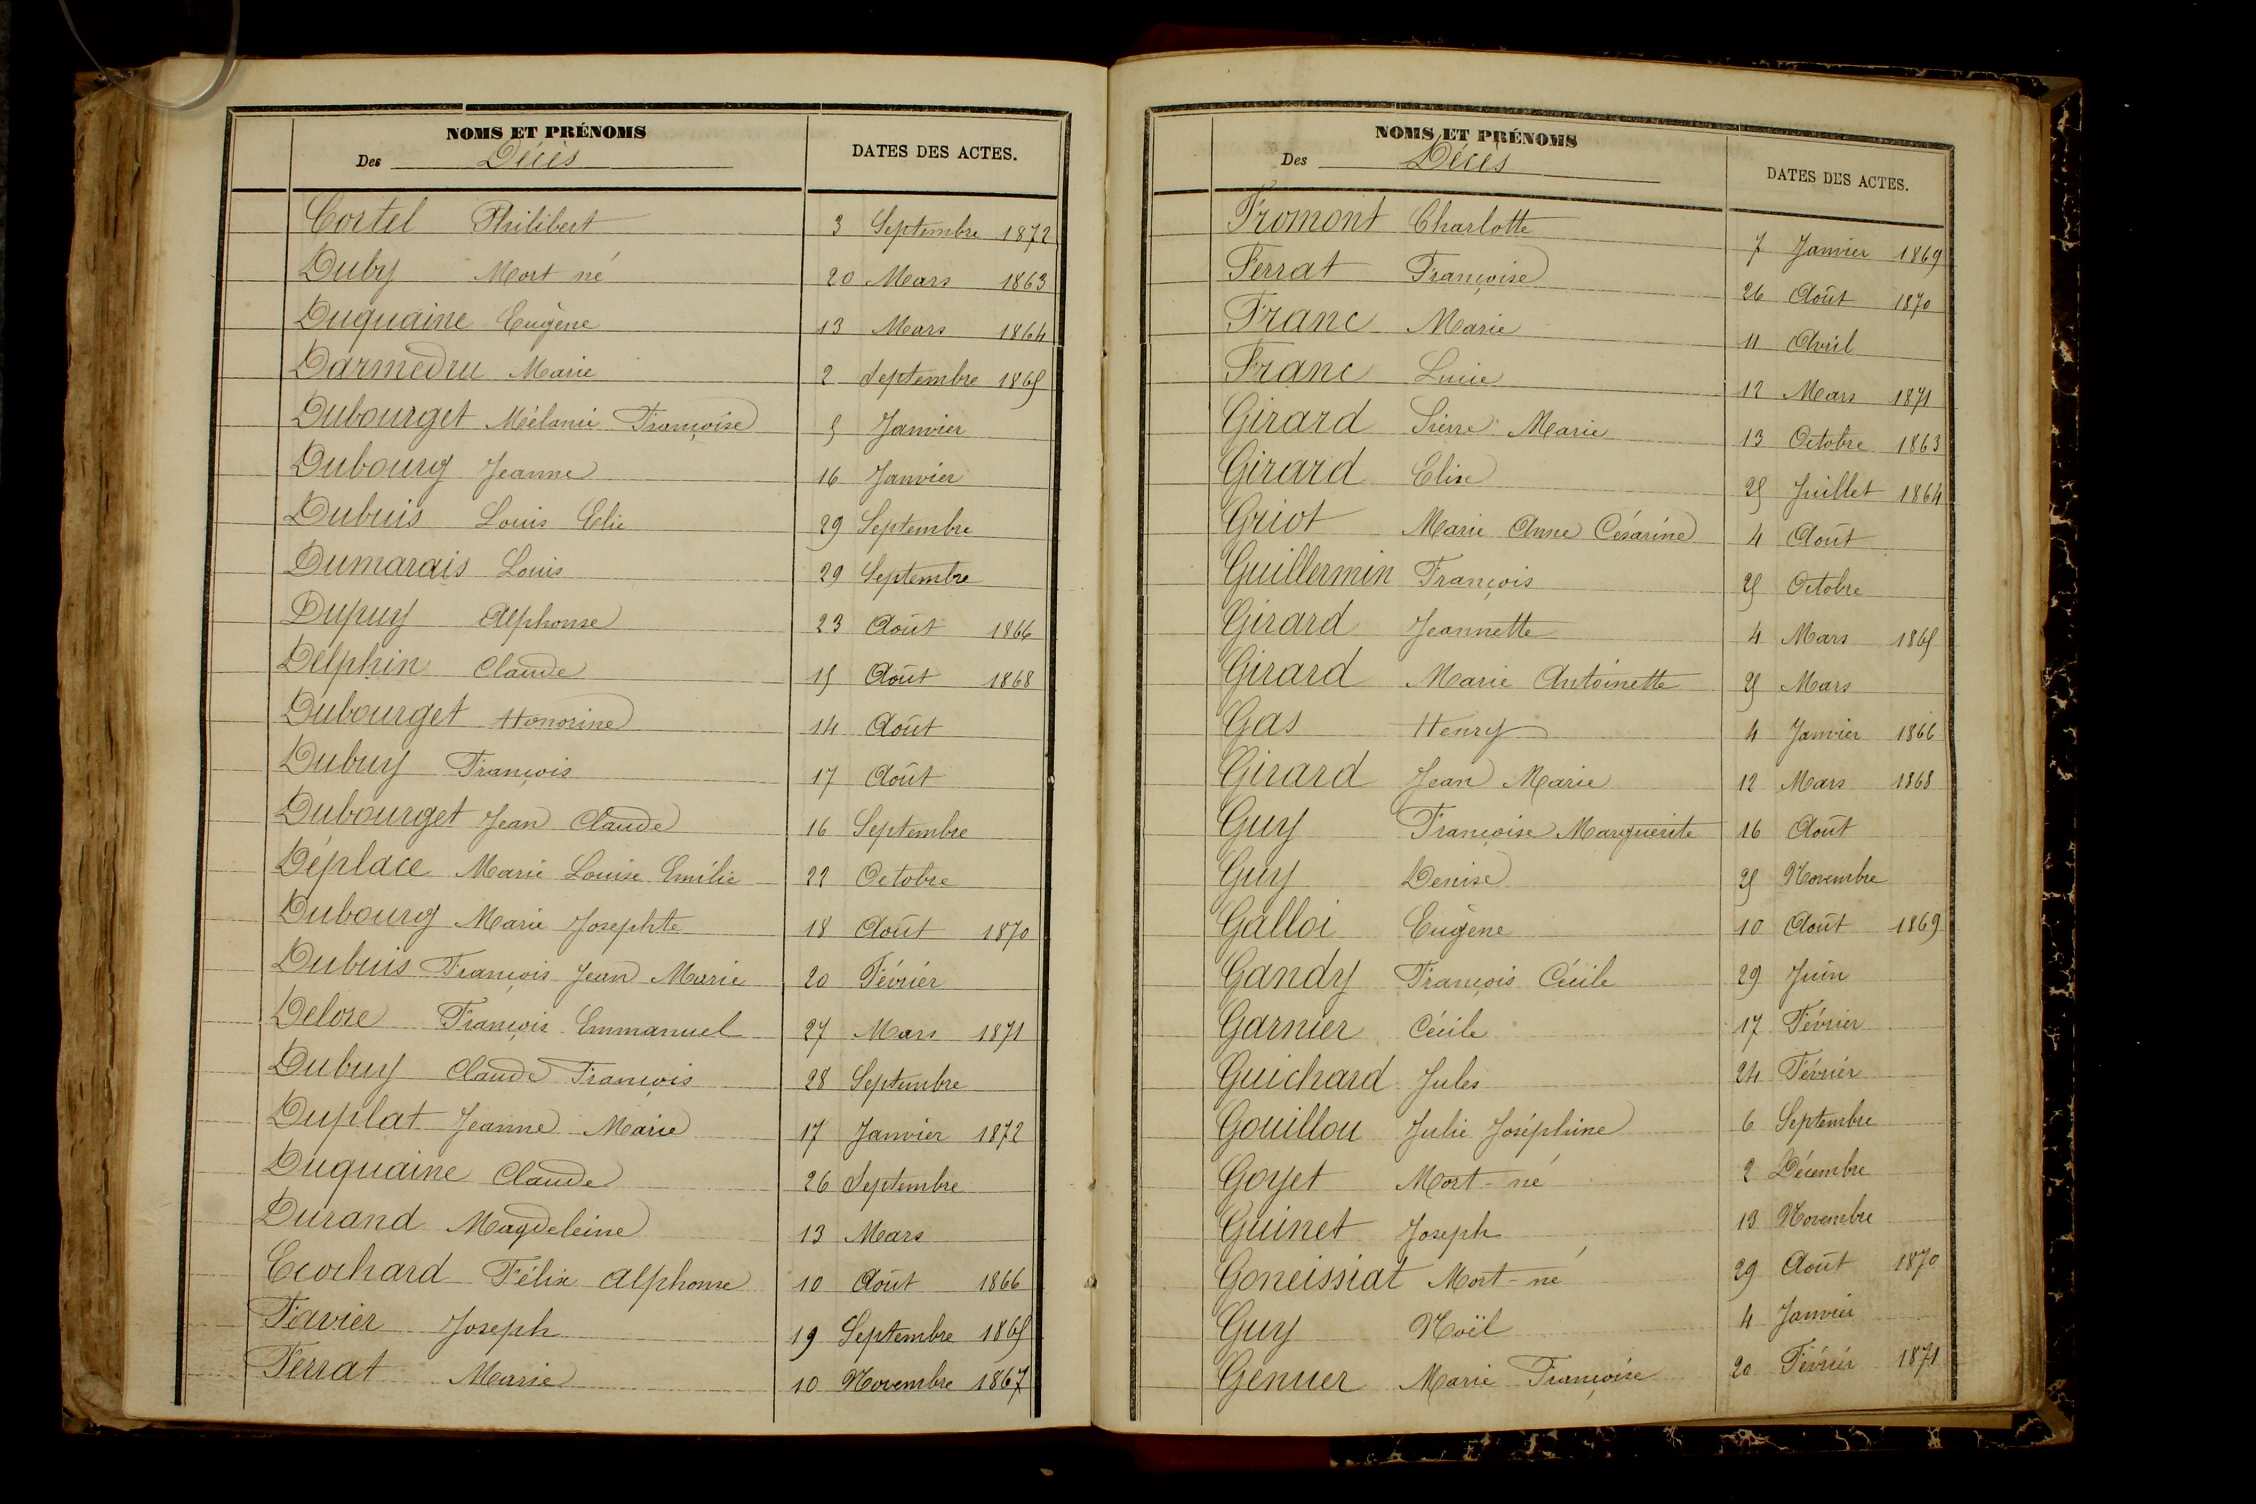 NOMS ET PRÉNOMS
Des Décès
DATES DES ACTES.
Cortel Philibert 3 Septembre 1872
Duby Mort né 20 Mars 1863
Duquaine Eugène 13 Mars 1864
Darmedru Marie 2 Septembre 1865
Dubourget Mélanie Françoise 5 Janvier
Dubourg Jeanne 16 Janvier
Dubuis Louis Elie 29 Septembre
Dumarais Louis 29 Septembre
Dupuy Alphonse 23 Août 1866
Delphin Claude 15 Août 1868
Dubourget Honorine 14 Août
Dubuy François 17 Août
Dubourget Jean Claude 16 Septembre
Déplace Marie Louise Emilie 22 Octobre
Dubourg Marie Josephte 18 Août 1870
Dubuis François Jean Marie 20 Février
Delore François Emmanuel 27 Mars 1871
Dubuy Claude François 28 Septembre
Duplat Jeanne Marie 17 Janvier 1872
Duquaine Claude 26 Septembre
Durand Magdeleine 13 Mars
Ecochard Félix Alphonse 10 Août 1866
Favier Joseph 19 Septembre 1865
Ferrat Marie 10 Novembre 1867
NOMS ET PRÉNOMS
Des Décès
DATES DES ACTES.
Fromont Charlotte 7 Janvier 1869
Ferrat Françoise 26 Août 1870
Franc Marie 11 Avril
Franc Lucie 12 Mars 1871
Girard Pierre Marie 13 Octobre 1863
Girard Elise 25 Juillet 1864
Griot Marie Anne Césarine 4 Août
Guillermin François 25 Octobre
Girard Jeannette 4 Mars 1865
Girard Marie Antoinette 25 Mars
Gas Henry 4 Janvier 1866
Girard Jean Marie 12 Mars 1868
Guy Françoise Marguerite 16 Août
Guy Denise 25 Novembre
Galloi Eugène 10 Août 1869
Gandy François Cécile 29 Juin
Garnier Cécile 17 Février
Guichard Jules 24 Février
Gouillou Julie Joséphine 6 Septembre
Goyet Mort-né 2 Décembre
Guinet Joseph 13 Novembre
Goneissiat Mort-né 29 Août 1870
Guy Noël 4 Janvier
Genuer Marie Françoise 20 Février 1871